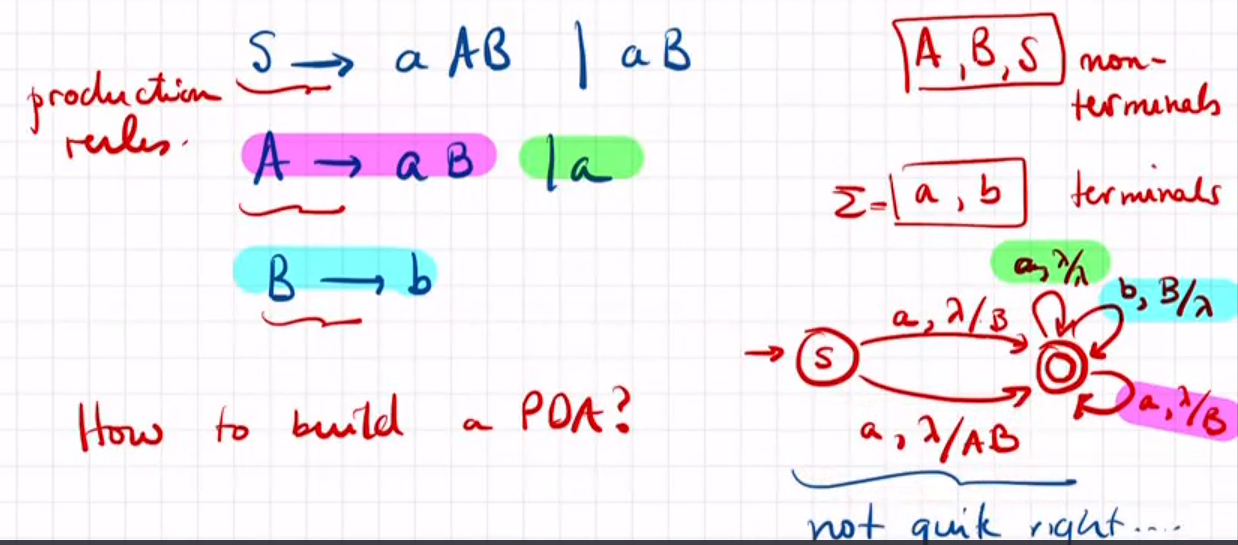 S → a AB | a B
production rules.
A → a B | a
B → b
How to build a PDA?
A, B, S non-terminals
Σ = a, b terminals
a, λ/λ
b, B/λ
a, λ/B
→ S
a, λ/B
a, λ/AB
not quik right....